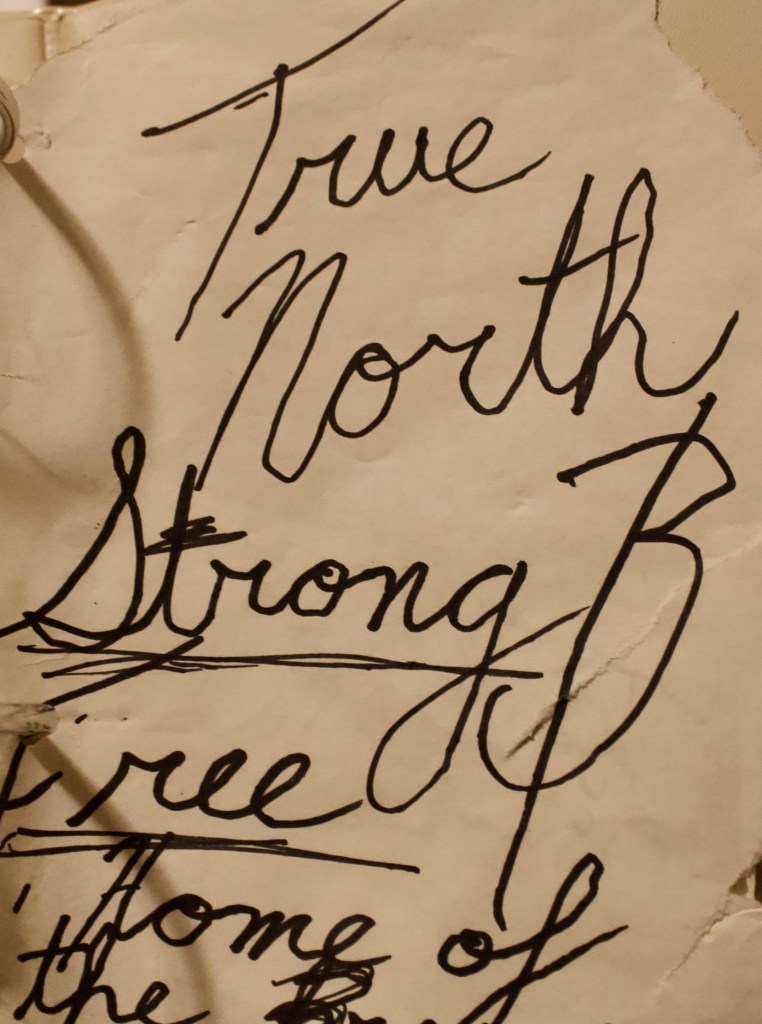 True
North
Strong B
Free
Home of
the